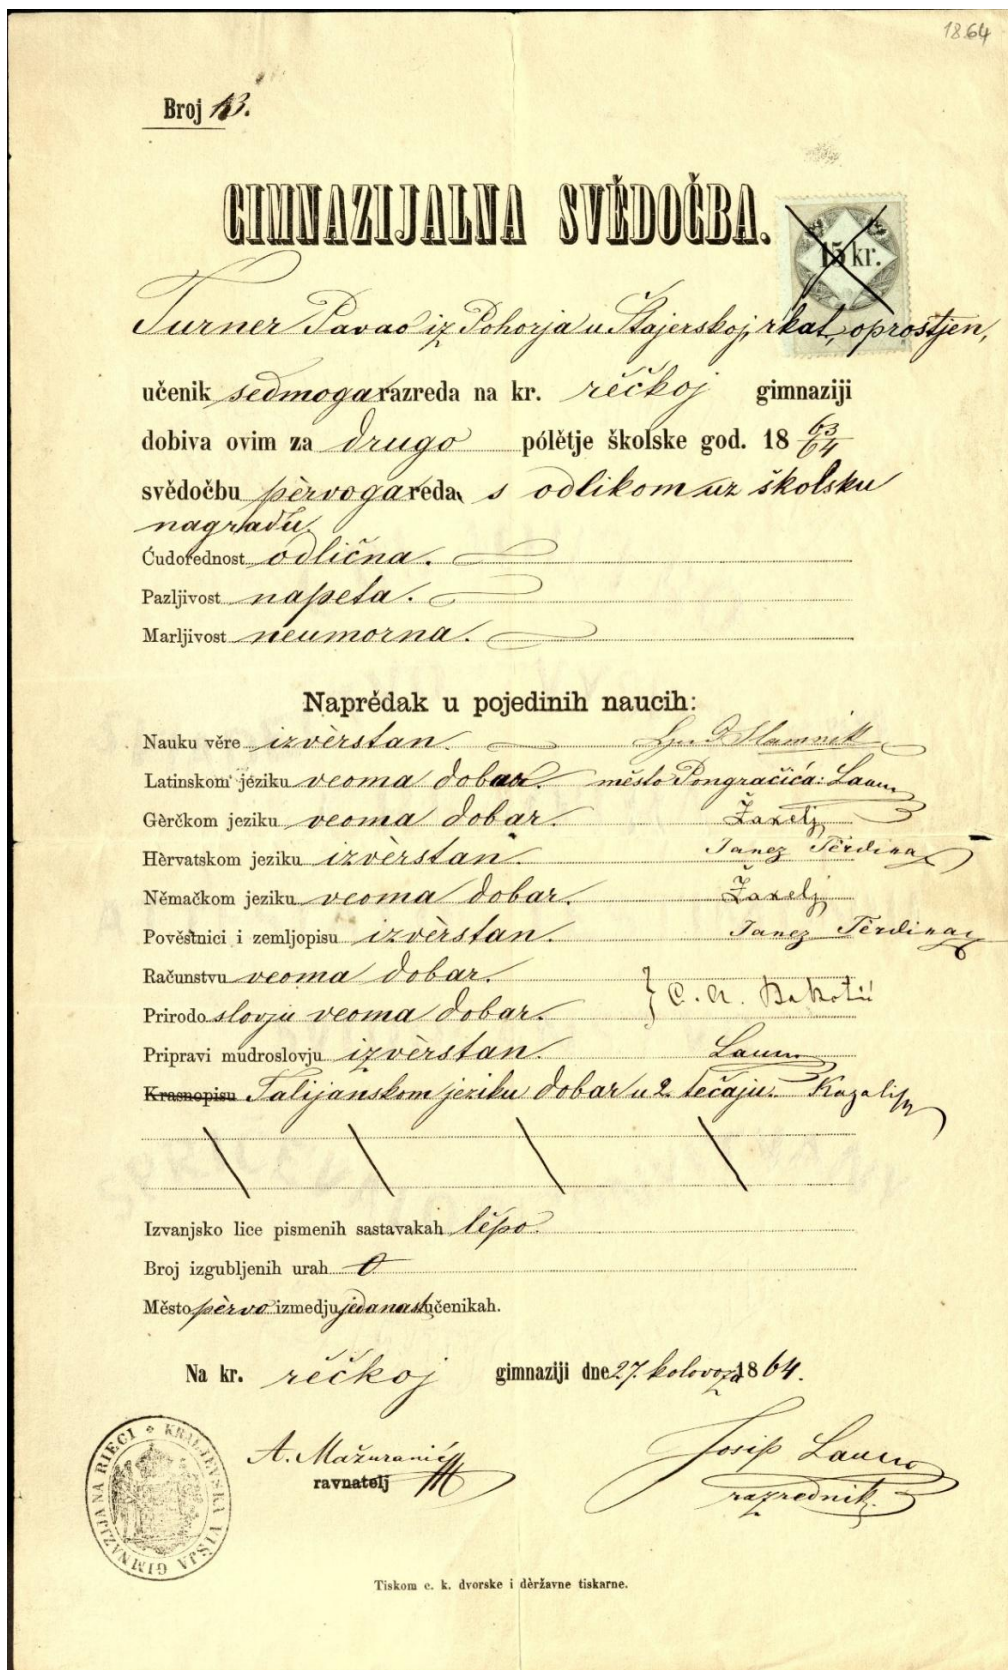 1864
Broj 13.
GIMNAZIJALNA SVĚDOČBA.
15 kr.
Turner Pavao iz Pohorja u Štajerskoj, rkat, oprostjen,
učenik sedmoga razreda na kr. rěčkoj gimnaziji
dobiva ovim za drugo pólětje školske god. 18 63/64
svědočbu pèrvoga reda s odlikom uz školsku
nagradu.
Ćudorednost odlična.
Pazljivost napeta.
Marljivost neumorna.
Naprědak u pojedinih naucih:
Nauku věre izvèrstan. Slamnik
Latinskom jeziku veoma dobar. město Pongračića: Laun
Gèrčkom jeziku veoma dobar. Žakelj
Hèrvatskom jeziku izvèrstan. Janez Tèrdina
Němačkom jeziku veoma dobar. Žakelj
Pověstnici i zemljopisu izvèrstan. Janez Tèrdina
Računstvu veoma dobar.
Prirodoslovju veoma dobar. C. A. Bakotić
Pripravi mudroslovju izvèrstan. Laun
Krasnopisu Talijanskom jeziku dobar u 2. tečaju.
Izvanjsko lice pismenih sastavakah lěpo.
Broj izgubljenih urah 0
Město pèrvo izmedju jedanast učenikah.
Na kr. rěčkoj gimnaziji dne 27. kolovoza 1864.
A. Mažuranić Josip Laun
ravnatelj razrednik.
KRALJEVSKA VIŠJA GIMNAZIJA NA RIECI
Tiskom c. k. dvorske i dèržavne tiskarne.